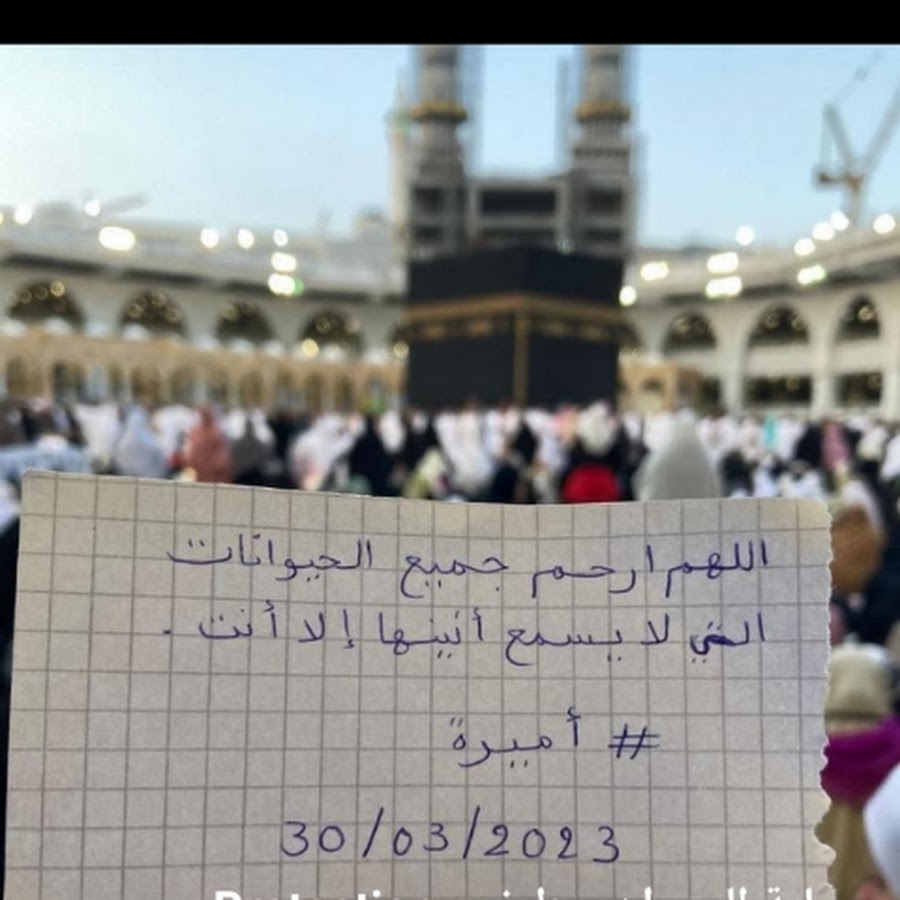 اللهم ارحم جميع الحيوانات
التي لا يسمع أنينها إلا أنت .
# أميرة
30/03/2023